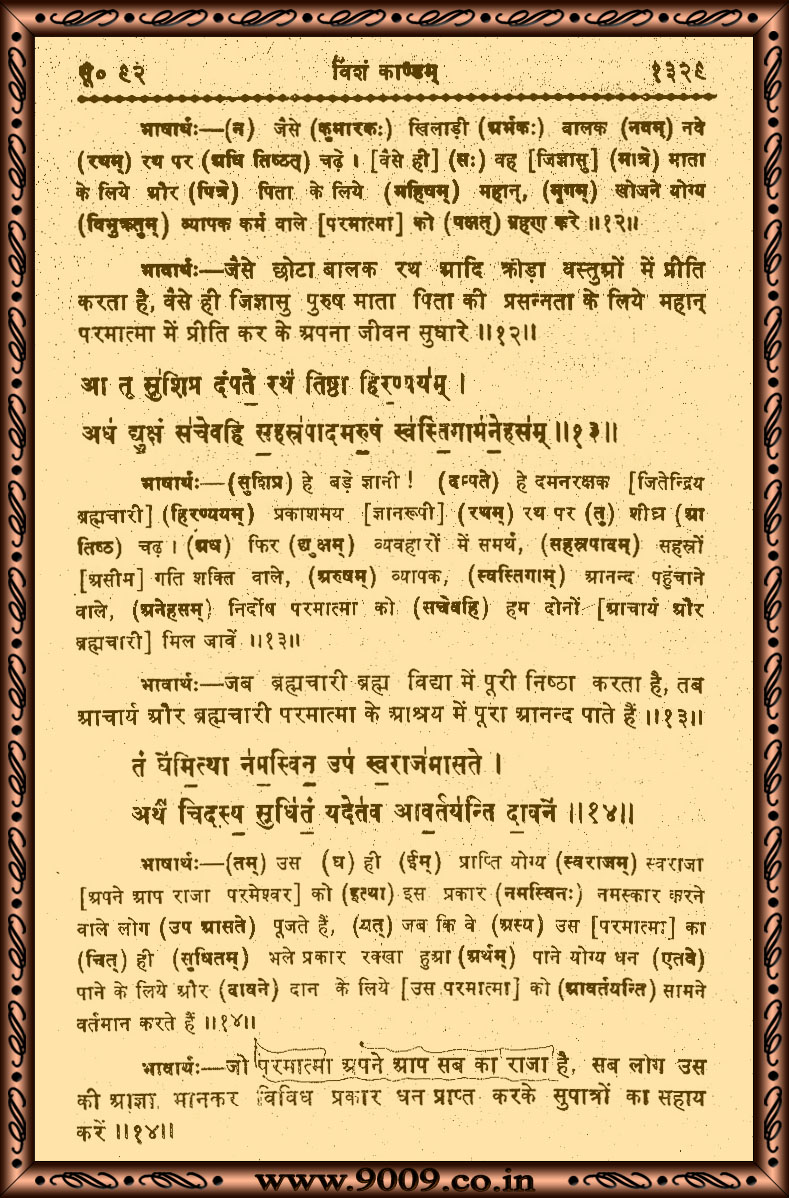 सू० ९२ विंशं काण्डम् १३२९
भाषार्थः—(न) जैसे (कुमारकः) खिलाड़ी (अर्भकः) बालक (नवम्) नवे
(रथम्) रथ पर (अधि तिष्ठत्) चढ़े । [वैसे ही] (सः) वह [जिज्ञासु] (मात्रे) माता
के लिये और (पित्रे) पिता के लिये (महिषम्) महान्, (मृगम्) खोजने योग्य
(विभुक्रतुम्) व्यापक कर्म वाले [परमात्मा] को (पक्षत्) ग्रहण करे ॥१२॥
भावार्थः—जैसे छोटा बालक रथ आदि क्रीड़ा वस्तुओं में प्रीति
करता है, वैसे ही जिज्ञासु पुरुष माता पिता की प्रसन्नता के लिये महान्
परमात्मा में प्रीति कर के अपना जीवन सुधारे ॥१२॥
आ तू सु॑शिप्र दंपते॒ रथं॑ तिष्ठा हिर॒ण्यय॑म् ।
अध॑ द्यु॒क्षं स॑चेवहि स॒हस्र॑पादमरु॒षं स्व॑स्ति॒गाम॑ने॒हस॑म् ॥१३॥
भाषार्थः—(सुशिप्र) हे बड़े ज्ञानी ! (दम्पते) हे दमनरक्षक [जितेन्द्रिय
ब्रह्मचारी] (हिरण्ययम्) प्रकाशमय [ज्ञानरूपी] (रथम्) रथ पर (तु) शीघ्र (आ
तिष्ठ) चढ़ । (अध) फिर (द्युक्षम्) व्यवहारों में समर्थ, (सहस्रपादम्) सहस्रों
[असीम] गति शक्ति वाले, (अरुषम्) व्यापक, (स्वस्तिगाम्) आनन्द पहुंचाने
वाले, (अनेहसम्) निर्दोष परमात्मा को (सचेवहि) हम दोनों [आचार्य और
ब्रह्मचारी] मिल जावें ॥१३॥
भावार्थः—जब ब्रह्मचारी ब्रह्म विद्या में पूरी निष्ठा करता है, तब
आचार्य और ब्रह्मचारी परमात्मा के आश्रय में पूरा आनन्द पाते हैं ॥१३॥
तं घे॑मि॒त्था न॑म॒स्विन॒ उप॑ स्व॒राज॑मासते ।
अर्थं॑ चिदस्य॒ सुधि॑तं॒ यदेत॑व आव॒र्तय॑न्ति दा॒वने॑ ॥१४॥
भाषार्थः—(तम्) उस (घ) ही (ईम्) प्राप्ति योग्य (स्वराजम्) स्वराजा
[अपने आप राजा परमेश्वर] को (इत्था) इस प्रकार (नमस्विनः) नमस्कार करने
वाले लोग (उप आसते) पूजते हैं, (यत्) जब कि वे (अस्य) उस [परमात्मा] का
(चित्) ही (सुधितम्) भले प्रकार रक्खा हुआ (अर्थम्) पाने योग्य धन (एतवे)
पाने के लिये और (दावने) दान के लिये [उस परमात्मा] को (आवर्तयन्ति) सामने
वर्तमान करते हैं ॥१४॥
भावार्थः—जो परमात्मा अपने आप सब का राजा है, सब लोग उस
की आज्ञा मानकर विविध प्रकार धन प्राप्त करके सुपात्रों का सहाय
करें ॥१४॥
www.9009.co.in